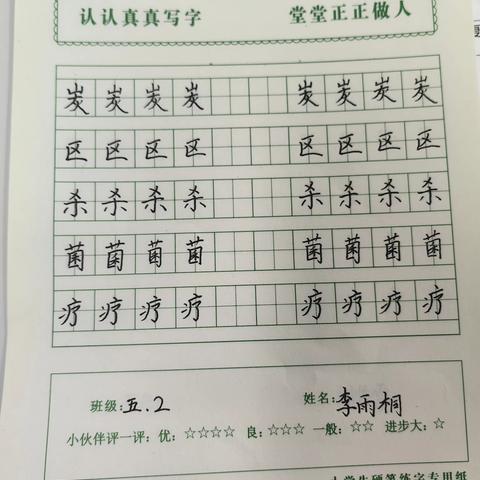 认认真真写字 堂堂正正做人
炭炭炭炭 炭炭炭炭
区区区区 区区区区
杀杀杀杀 杀杀杀杀
菌菌菌菌 菌菌菌菌
疗疗疗疗 疗疗疗疗
班级:五.2 姓名:李雨桐
小伙伴评一评: 优:☆☆☆☆ 良:☆☆☆ 一般:☆☆ 进步大:☆
小学生硬笔练字专用纸